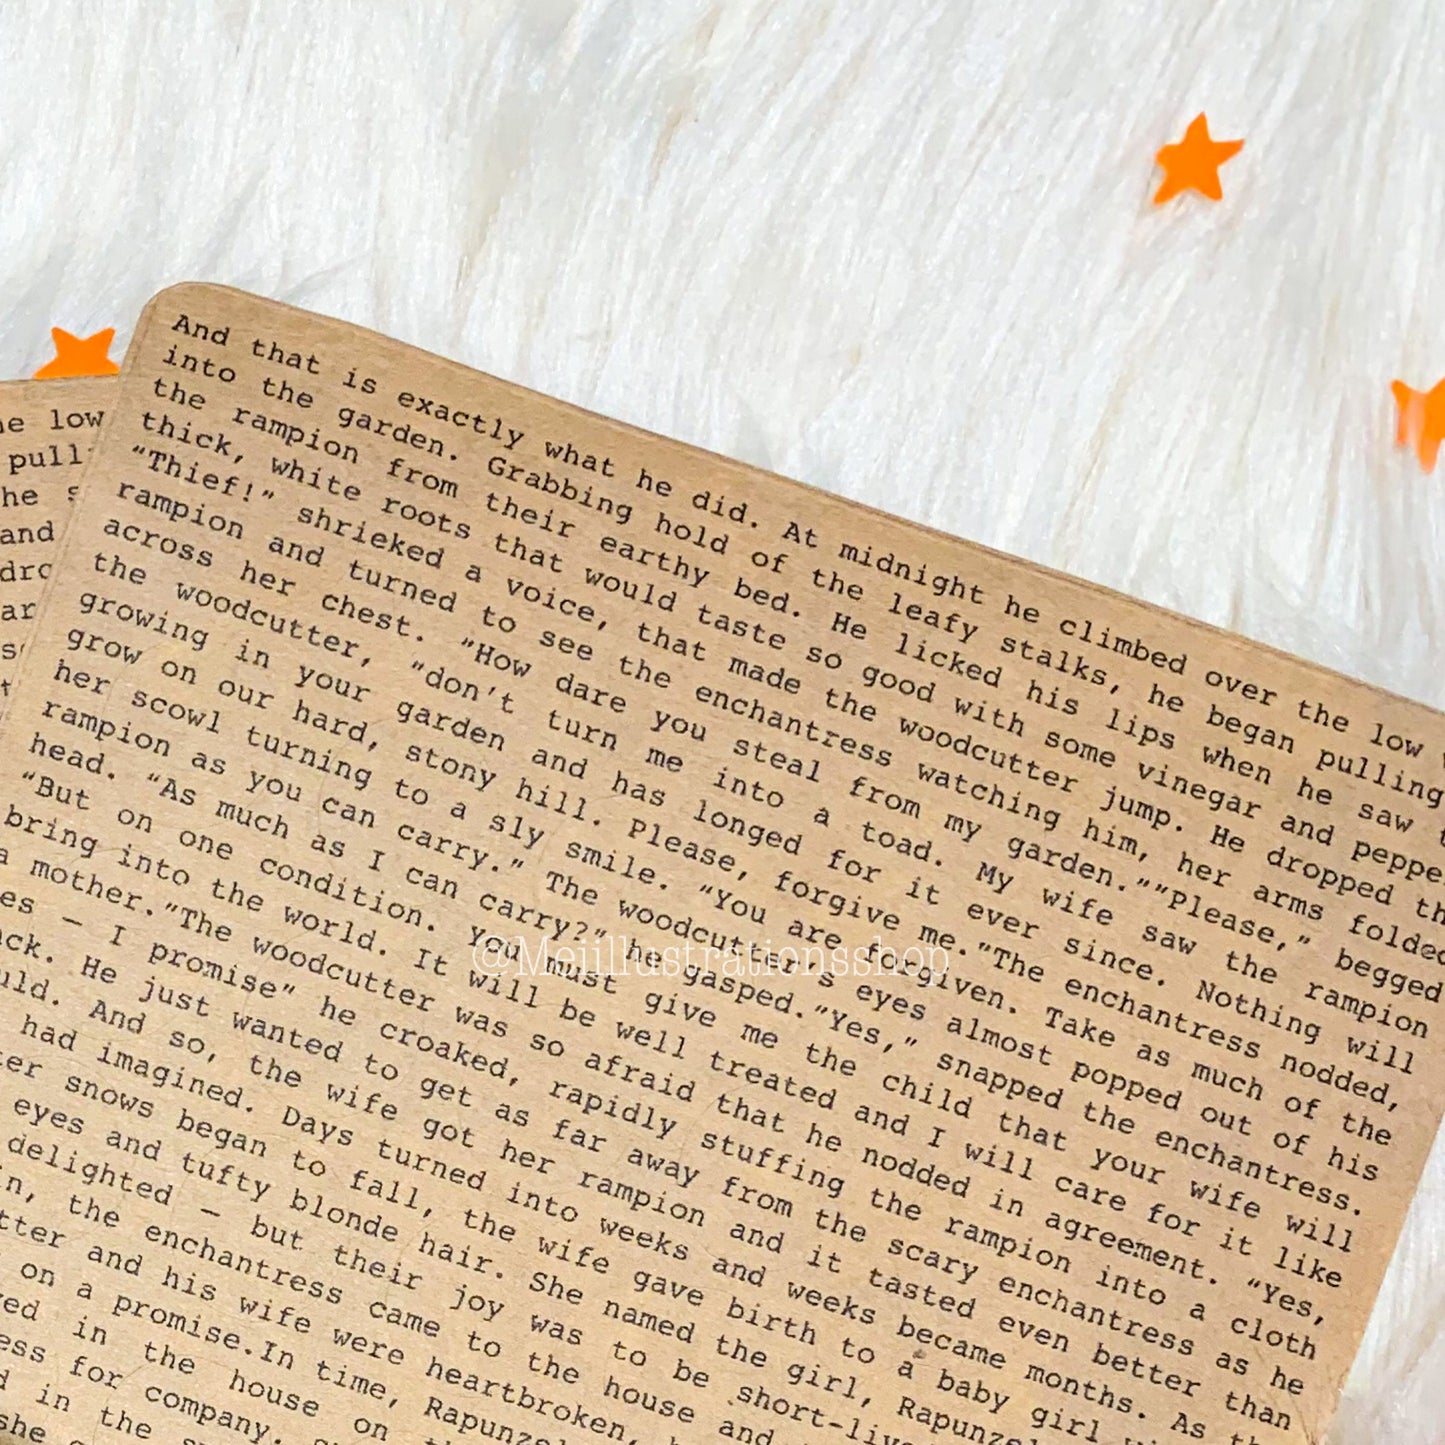 And that is exactly what he did. At midnight he climbed over the low
into the garden. Grabbing hold of the leafy stalks, he began pulling
the rampion from their earthy bed. He licked his lips when he saw
thick, white roots that would taste so good with some vinegar and peppe
“Thief!” shrieked a voice, that made the woodcutter jump. He dropped th
rampion and turned to see the enchantress watching him, her arms folded
across her chest. “How dare you steal from my garden.””Please,” begged
the woodcutter, “don’t turn me into a toad. My wife saw the rampion
growing in your garden and has longed for it ever since. Nothing will
grow on our hard, stony hill. Please, forgive me.”The enchantress nodded,
her scowl turning to a sly smile. “You are forgiven. Take as much of the
rampion as you can carry.” The woodcutter’s eyes almost popped out of his
head. “As much as I can carry?” he gasped.”Yes,” snapped the enchantress.
“But on one condition. You must give me the child that your wife will
bring into the world. It will be well treated and I will care for it like
a mother.”The woodcutter was so afraid that he nodded in agreement. “Yes,
es — I promise” he croaked, rapidly stuffing the rampion into a cloth
ack. He just wanted to get as far away from the scary enchantress as he
uld. And so, the wife got her rampion and it tasted even better than
had imagined. Days turned into weeks and weeks became months. As th
ter snows began to fall, the wife gave birth to a baby girl
eyes and tufty blonde hair. She named the girl, Rapunzel
delighted — but their joy was to be short-live
n, the enchantress came to the house and
tter and his wife were heartbroken,
on a promise.In time, Rapunzel
ved in the house on
ess for company.
d in the
she
low
pull
he
and
dro
@Meiillustrationsshop